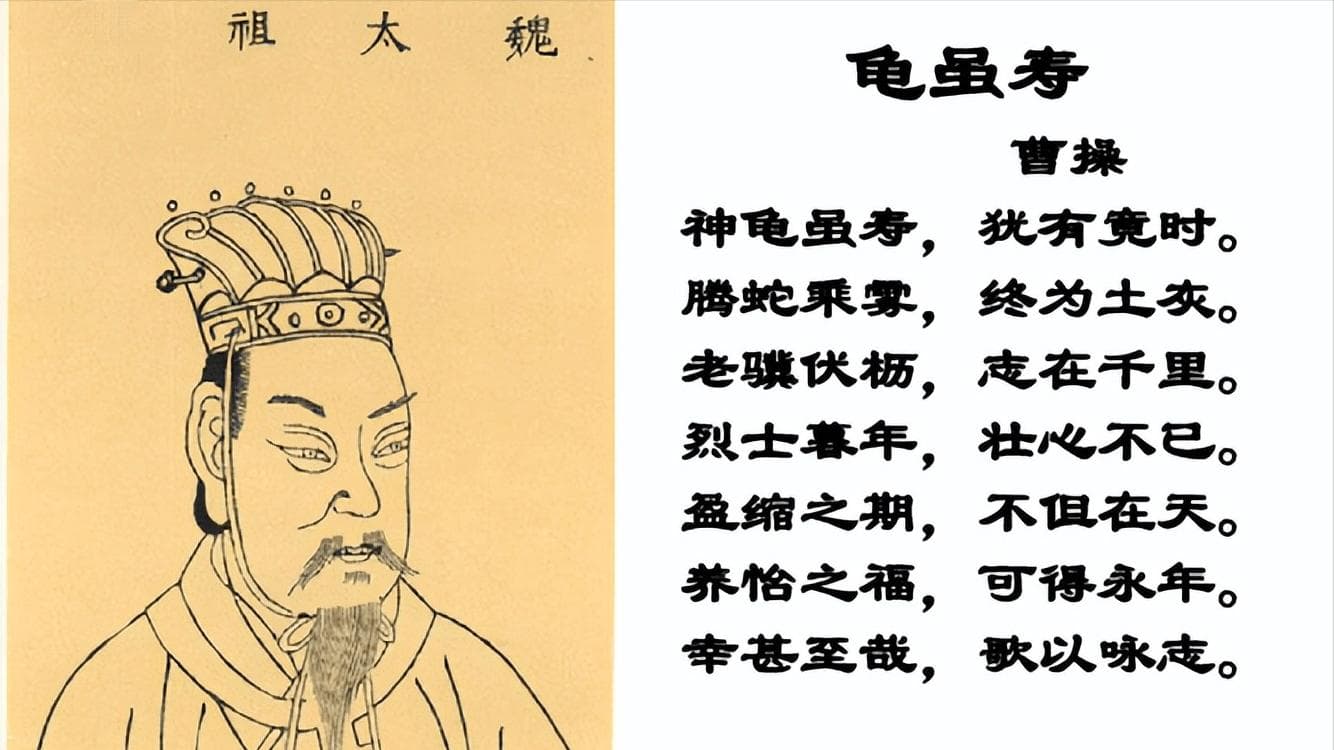 魏太祖
龟虽寿
曹操
神龟虽寿，犹有竟时。
腾蛇乘雾，终为土灰。
老骥伏枥，志在千里。
烈士暮年，壮心不已。
盈缩之期，不但在天。
养怡之福，可得永年。
幸甚至哉，歌以咏志。